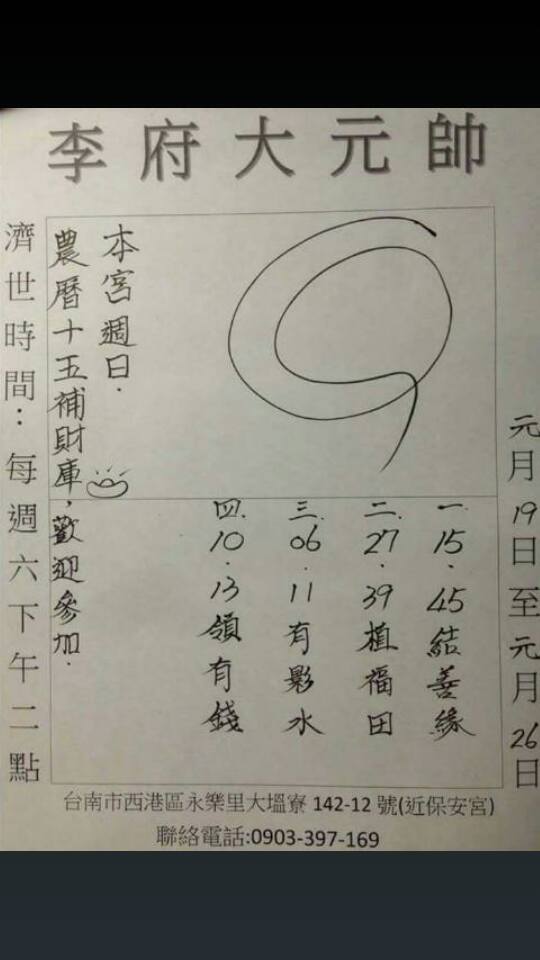 李府大元帥
元月19日至元月26日
一.15.45結善緣
二.27.39植福田
三.06.11有影水
四.10.13領有錢
本宮週日.
農曆十五補財庫,歡迎參加.
濟世時間：每週六下午二點
台南市西港區永樂里大塭寮142-12號(近保安宮)
聯絡電話:0903-397-169